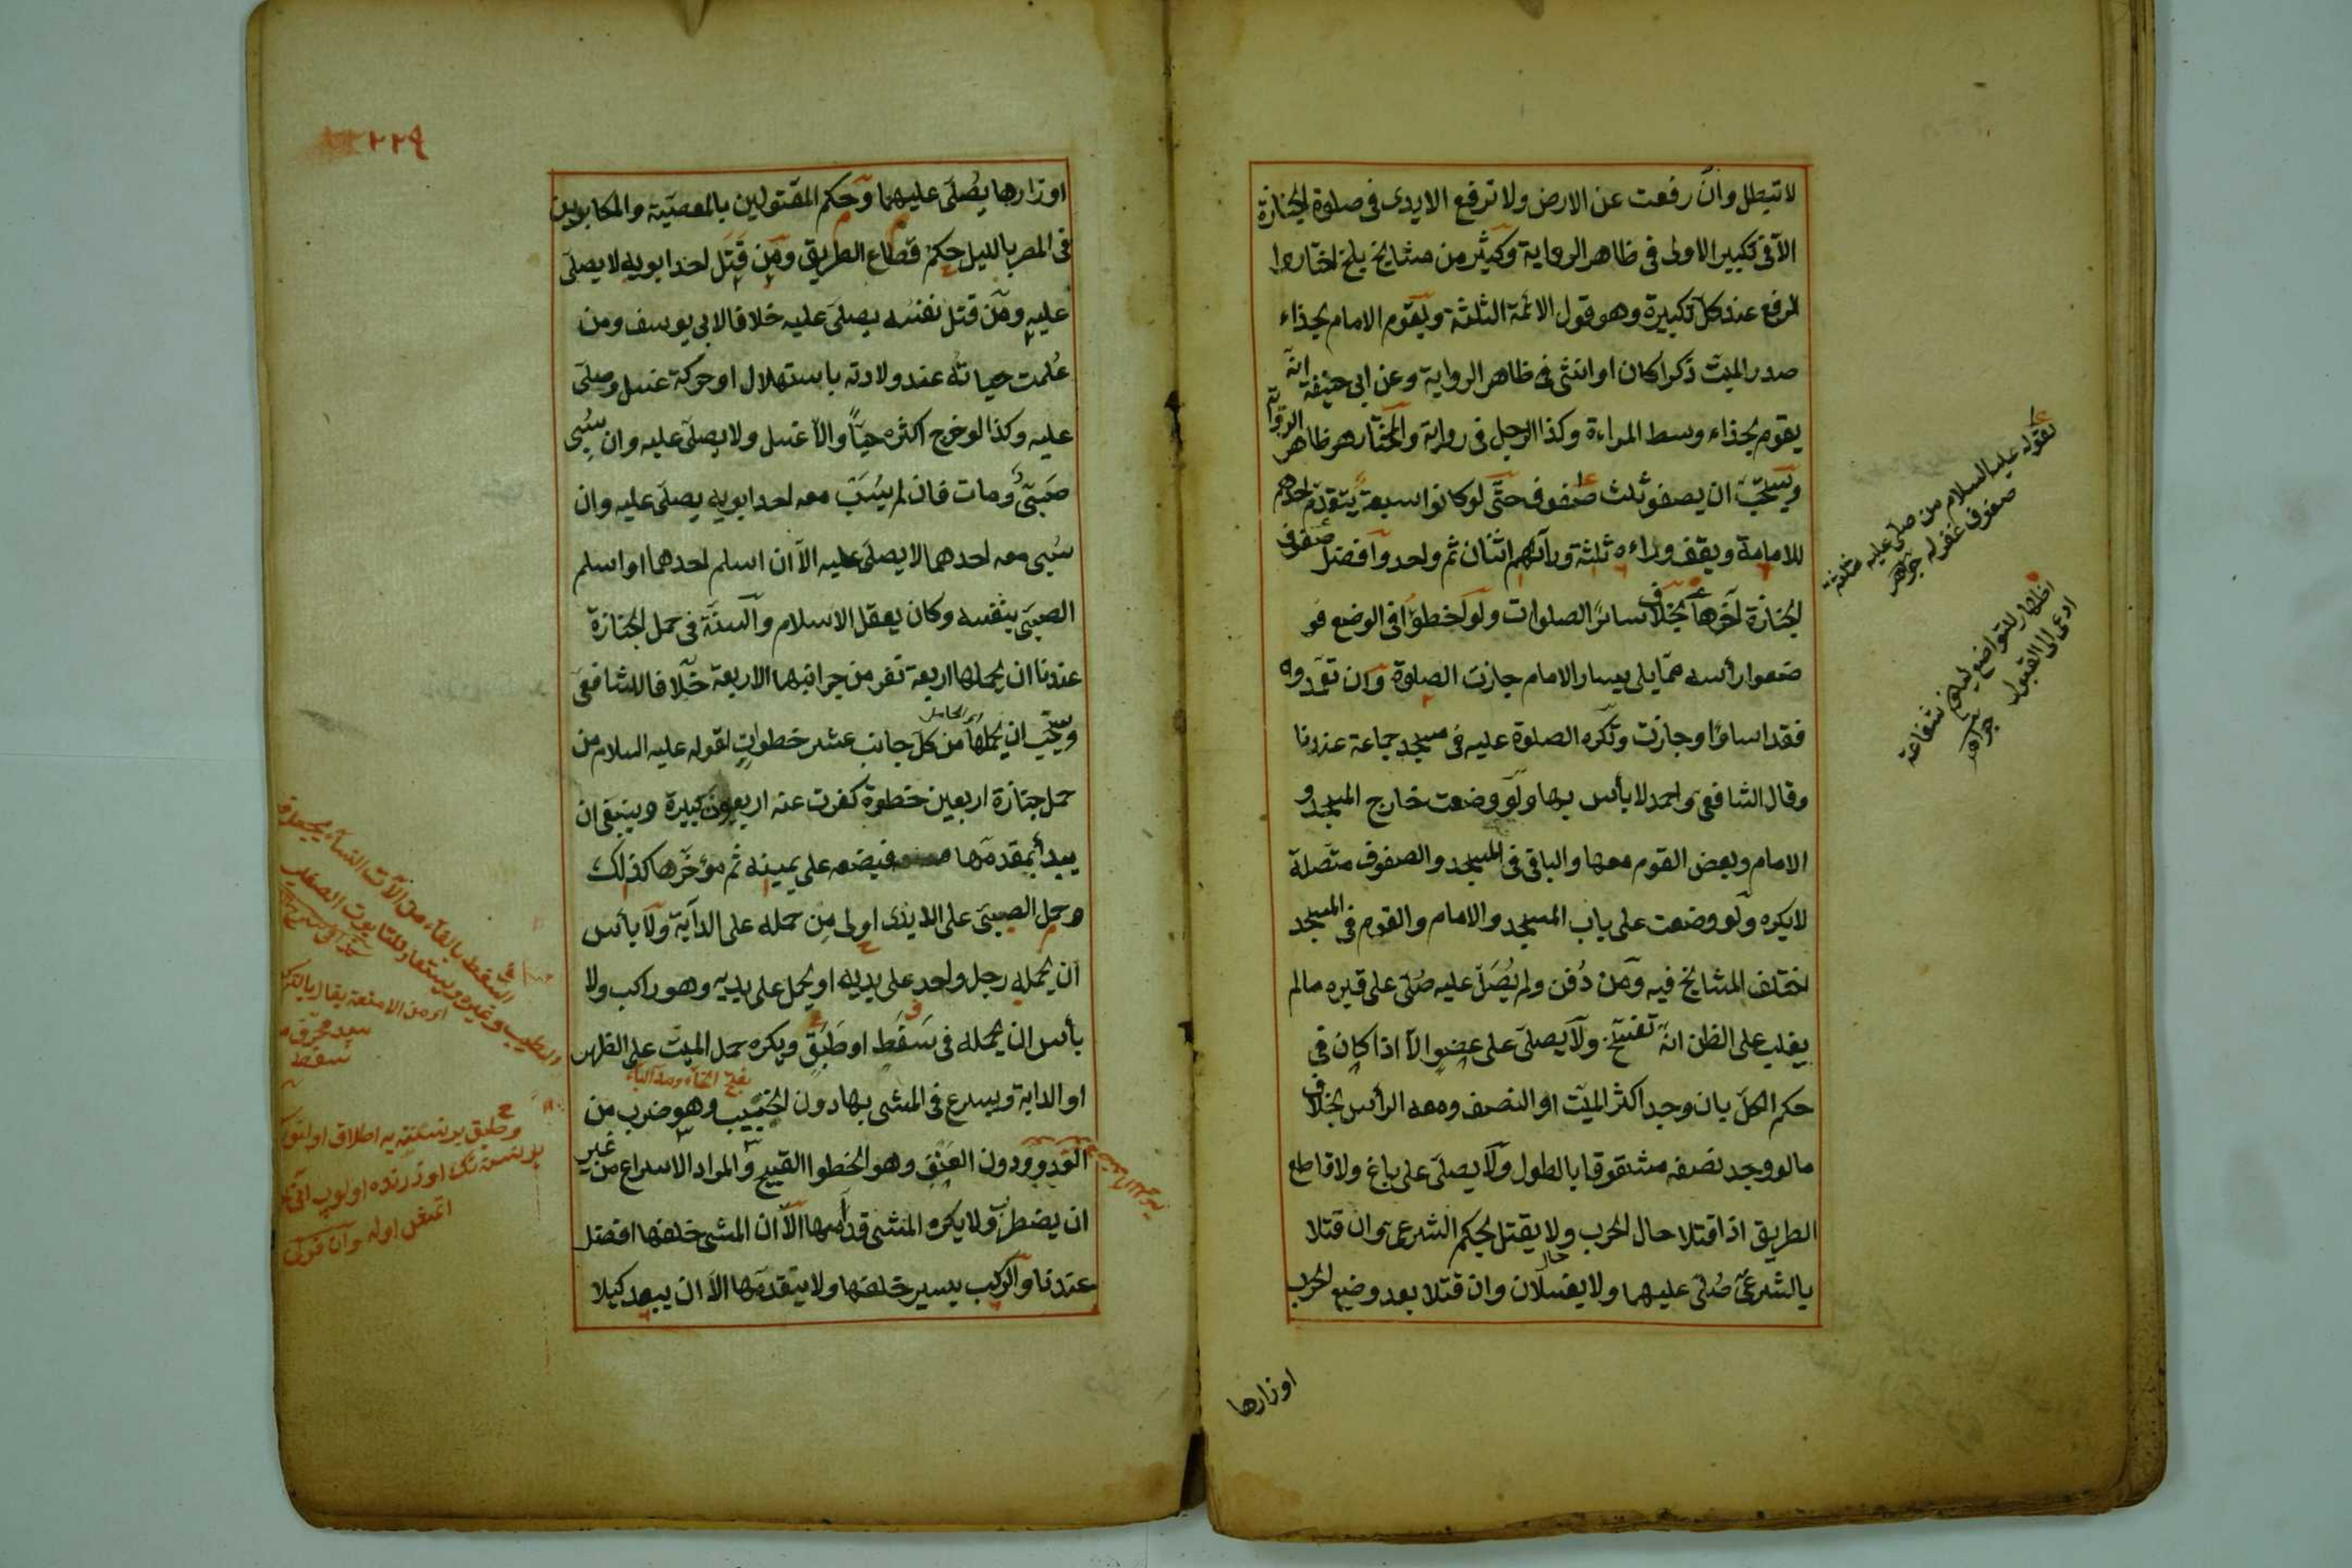 لا تبطل وان رفعت عن الارض ولا ترفع الايدى فى صلوة الجنازة
الا فى تكبير الاولى فى ظاهر الرواية وكثير من مشايخ بلخ اختاروا
الرفع عند كل تكبيرة وهو قول الائمة الثلثة ويقوم الامام بحذاء
صدر الميت ذكرا كان او انثى فى ظاهر الرواية وعن ابى حنيفة انه
يقوم بحذاء وسط المراءة وكذا الرجل فى رواية والمختار هو ظاهر الرواية
ويستحب ان يصفو ثلث صفوف حتى لو كانوا سبعة يتقدم احدهم
للامامة ويقف وراءه ثلثة ورآئهم اثنان ثم واحد وافضل صفوف
الجنازة آخرها بخلاف سائر الصلوات ولو اخطؤا فى الوضع فو
ضعوا رأسه مما يلى يسار الامام جازت الصلوة وان تعمدوه
فقد اساؤا وجازت وتكره الصلوة عليه فى مسجد جماعة عندنا
وقال الشافعى واحمد لا بأس بها ولو وضعت خارج المسجد و
الامام وبعض القوم معها والباقى فى المسجد والصفوف متصلة
لا يكره ولو وضعت على باب المسجد والامام والقوم فى المسجد
اختلف المشايخ فيه ومن دُفن ولم يُصَلّ عليه صُلّى على قبره مالم
يغلب على الظن انه تفسخ ولا يصلى على عضو الا اذا كان فى
حكم الكل بان وجد اكثر الميت او النصف ومعه الرأس بخلاف
ما لو وجد نصفه مشقوقا بالطول ولا يصلى على باغ ولا قاطع
الطريق اذا قتلا حال الحرب ولا يقتل بحكم الشرع وان قتلا
بالشرع صُلّى عليهما ولا يغسلان وان قتلا بعد وضع الحرب
اوزارها
لقوله عليه السلام من صلى عليه ثلثة
صفوف غفر له جواهر
اظهار للتواضع ليكون شفاعته
ادعى الى القبول جواهر
٢٢٩
اوزارها يُصلى عليهما وحكم المقتولين بالعصبية والمكابرين
فى المصر بالليل حكم قطاع الطريق ومن قَتَل احد ابويه لا يصلى
عليه ومن قتل نفسه يصلى عليه خلافا لابى يوسف ومن
عُلمت حياته عند ولادته باستهلال او حركة غسل وصلى
عليه وكذا لو خرج اكثره حيّاً والا غسل ولا يصلى عليه وان سُبى
صبىّ ومات فان لم يُسبَ معه احد ابويه يصلى عليه وان
سُبى معه احدهما لا يصلى عليه الا ان اسلم احدهما او اسلم
الصبى بنفسه وكان يعقل الاسلام والسنة فى حمل الجنازة
عندنا ان يحملها اربعة نفر من جوانبها الاربعة خلافا للشافعى
ويستحب ان يحملها من كل جانب عشر خطوات لقوله عليه السلام من
حمل جنازة اربعين خطوة كفرت عنه اربعون كبيرة وينبغى ان
يبدأ بمقدمها فيضعه على يمينه ثم مؤخرها كذلك
وحمل الصبى على الايدى اولى من حمله على الدابة ولا بأس
ان يحمله رجل واحد على يديه او يحمل على يديه وهو راكب ولا
بأس ان يحمله فى سَفَطٍ او طَبَقٍ ويكره حمل الميت على الظهر
او الدابة ويسرع فى المشى بها دون الخبب وهو ضرب من
العدو ودون العَنَق وهو الخطوا الفسيح والمراد الاسراع من غير
ان يضطرّ ولا يكره المشى قدامها الا ان المشى خلفها افضل
عندنا والراكب يسير خلفها ولا يتقدمها الا ان يبعد كيلا
اى الحامل
بفتح الخاء وهذا الباء